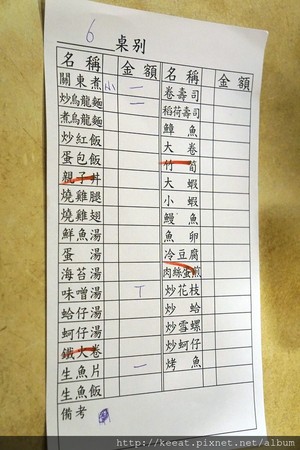 6 桌別
名稱 金額 名稱 金額
關東煮 小 一 卷壽司
炒烏龍麵 二 稻荷壽司
煮烏龍麵 鱆魚
炒紅飯 大卷
蛋包飯 竹筍
親子丼 大蝦
燒雞腿 小蝦
燒雞翅 鰻魚
鮮魚湯 魚卵
蛋湯 冷豆腐
海苔湯 肉絲蛋煎
味噌湯 丅 炒花枝
蛤仔湯 炒蛤
蚵仔湯 炒雪螺
鐵火卷 炒蚵仔
生魚片 一 烤魚
生魚飯
備考
http://keeat.pixnet.net/album